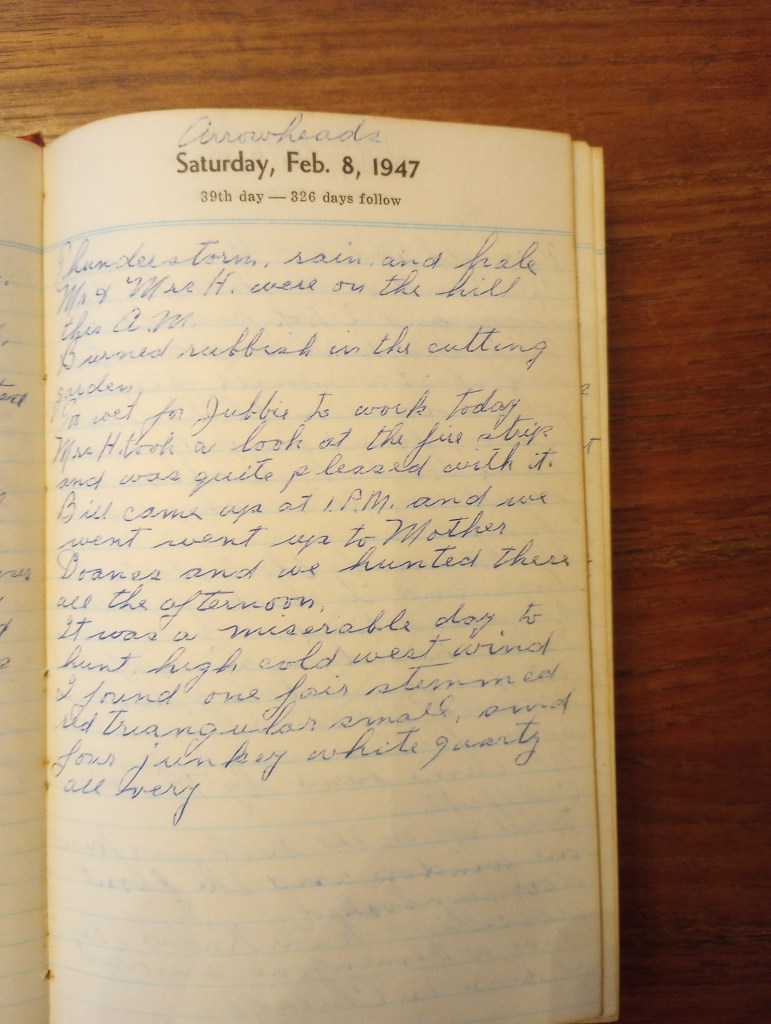 Arrowheads
Saturday, Feb. 8, 1947
39th day — 326 days follow
Thunderstorm, rain and hale
Mr & Mrs H. were on the hill
this A.M.
Burned rubbish in the cutting
garden.
To wet for Jubbie to work today
Mrs H. took a look at the fire strip
and was quite pleased with it.
Bill came up at 1.P.M. and we
went went up to Mother
Doanes and we hunted there
all the afternoon.
It was a miserable day to
hunt high cold west wind
I found one fair stemmed
red triangular small, and
four junkey white quartz
all very